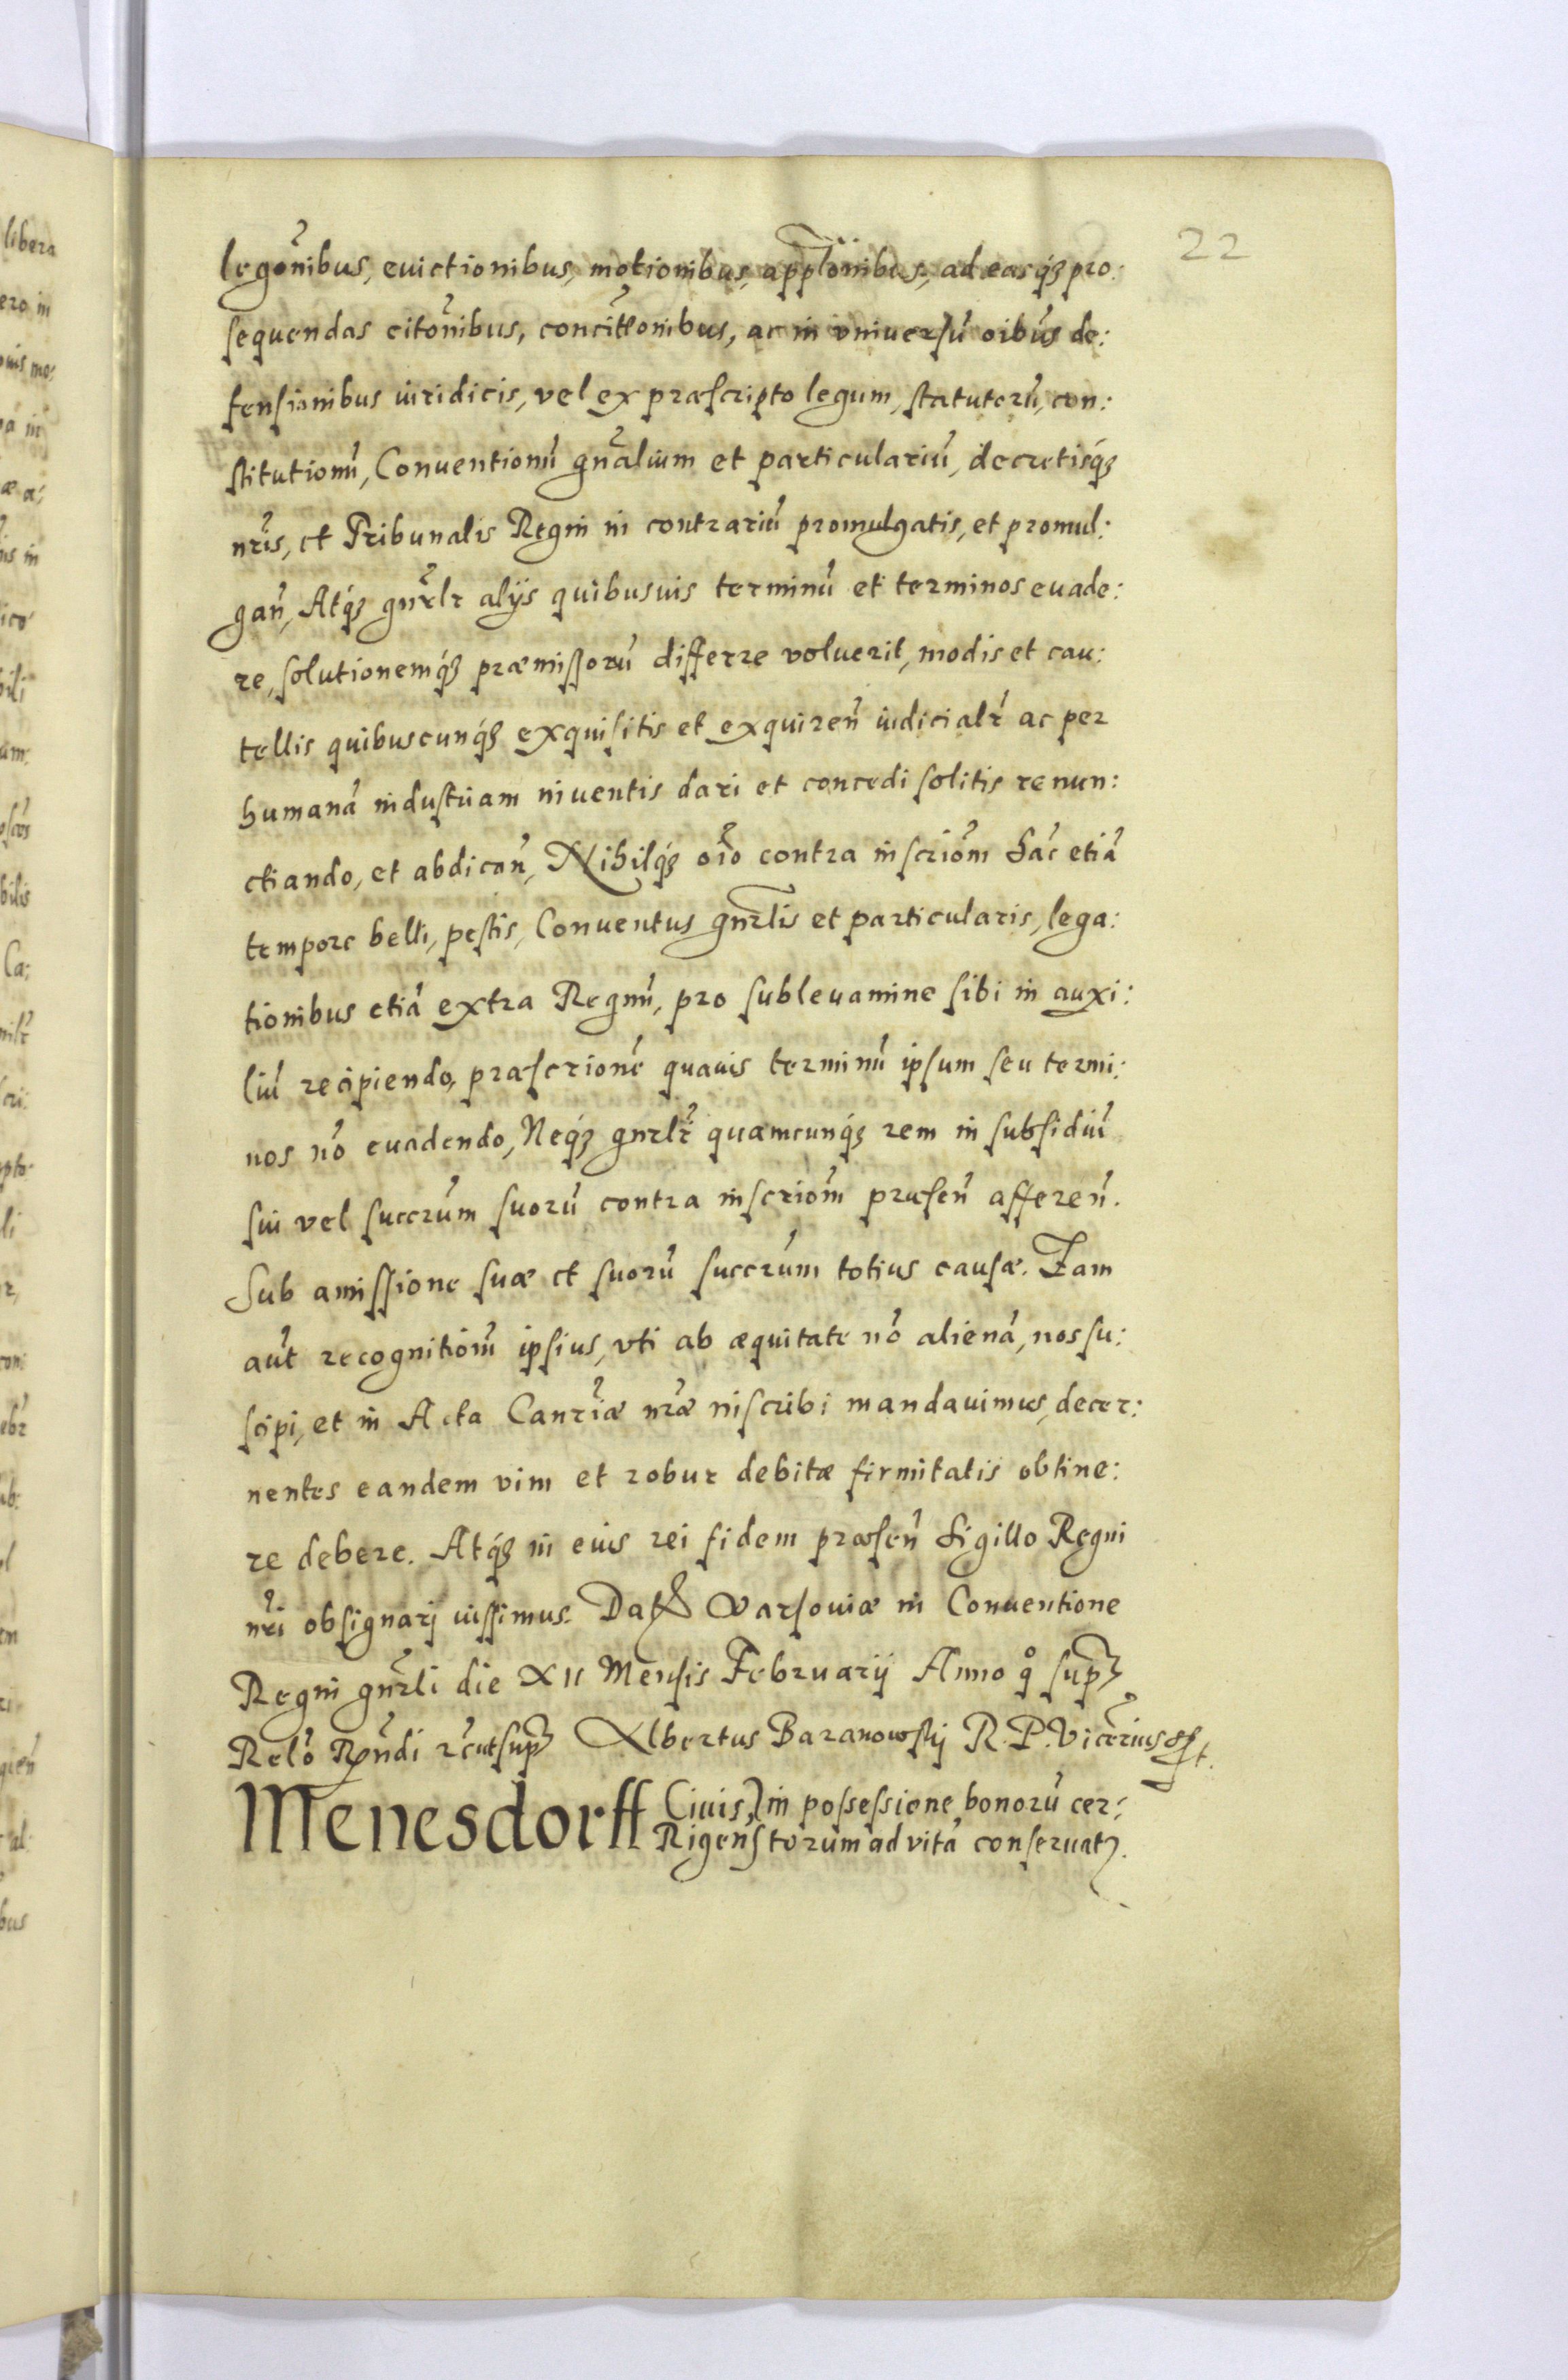 22
legõnibus, euictionibus, motionibus, appl̃onibus, ad easq́ꝫ pro:
sequendas citõnibus, concitt̃onibus, ac in vniuersũ oibũs de:
fensionibus iuridicis, vel ex præscripto legum, statutorũ, con:
stitutionũ, Conuentionũ gnãlium et particulariũ, decretisq́ꝫ
nrĩs, et Tribunalis Regni in contrariũ promulgatis, et promul:
gan̄, Atq́ꝫ gnr̃lr alijs quibusuis terminũ et terminos euade:
re, solutionemq́ꝫ præmissorũ differre voluerit, modis et cau:
tellis quibuscunq́ꝫ exquisitis et exquiren̄ iudicialr̃ ac per
humanã industriam inuentis dari et concedi solitis renun:
ctiando, et abdican̄, Nihilq́ꝫ oĩo contra inscriõm hãc etiã
tempore belli, pestis, Conuentus gnr̃lis et particularis, lega:
tionibus etiã extra Regnũ, pro subleuamine sibi in auxi:
liũ recipiendo, præscrionẽ quauis terminũ ipsum seu termi:
nos nõ euadendo, Neq́ꝫ gnrlr̃ quamcunq́ꝫ rem in subsidiũ
sui vel succrũm suorũ contra inscriõm præsen̄ afferen̄.
Sub amissione suæ et suorũ succrũm totius causæ. Eam
aũt recognitiõm ipsius, vti ab æquitate nõ alienã, nos su:
scipi, et in Acta Canr̃iæ nrǣ inscribi mandauimus, decer:
nentes eandem vim et robur debitæ firmitatis obtine:
re debere. Atq́ꝫ in euis rei fidem præsen̄ Sigillo Regni
nr̃i obsignarj iussimus. Dat̃ Varsouiæ in Conuentione
Regni gnr̃li die XII Mensis Februarij Anno q̊ supꝫ
Relõ Rṇ̃di rc̃ utsupꝫ Albertus Baranowskj R. P. Vicecr̃ius sst.
Menesdorff Ciuis Rigens̃ in possessione bonorũ cer:
torum ad vitã conseruatꝫ.